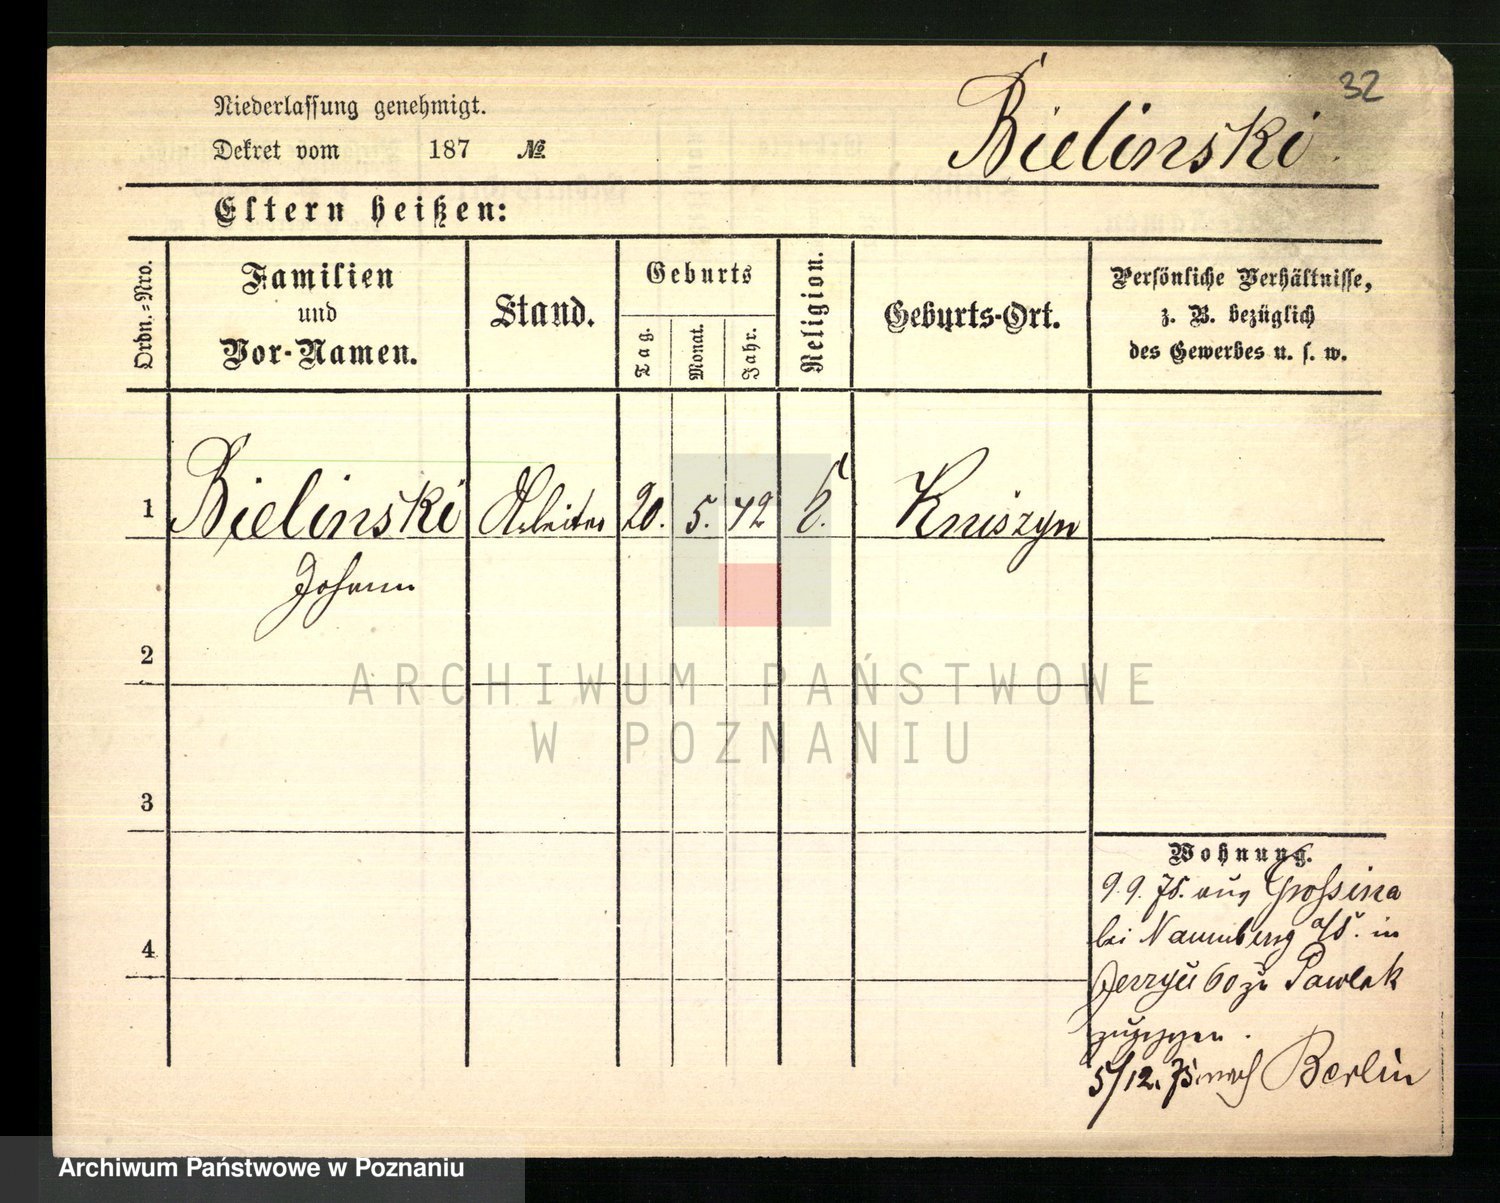 32
Niederlassung genehmigt.
Bielinski.
Dekret vom 187 №
Eltern heißen:
Ordn.-Nro.
Familien
und
Vor-Namen.
Stand.
Geburts
Tag.
Monat.
Jahr.
Religion.
Geburts-Ort.
Persönliche Verhältnisse,
z. B. bezüglich
des Gewerbes u. s. w.
1 Bielinski Arbeiter 20. 5. 42 Kniszyn
Johann
2
ARCHIWUM PAŃSTWOWE
W POZNANIU
3
Wohnung.
9.9.75. aus
bei Naumberg a/S. in
60 zu Pawlak
zugezogen.
4
5/12.75 nach Berlin
Archiwum Państwowe w Poznaniu